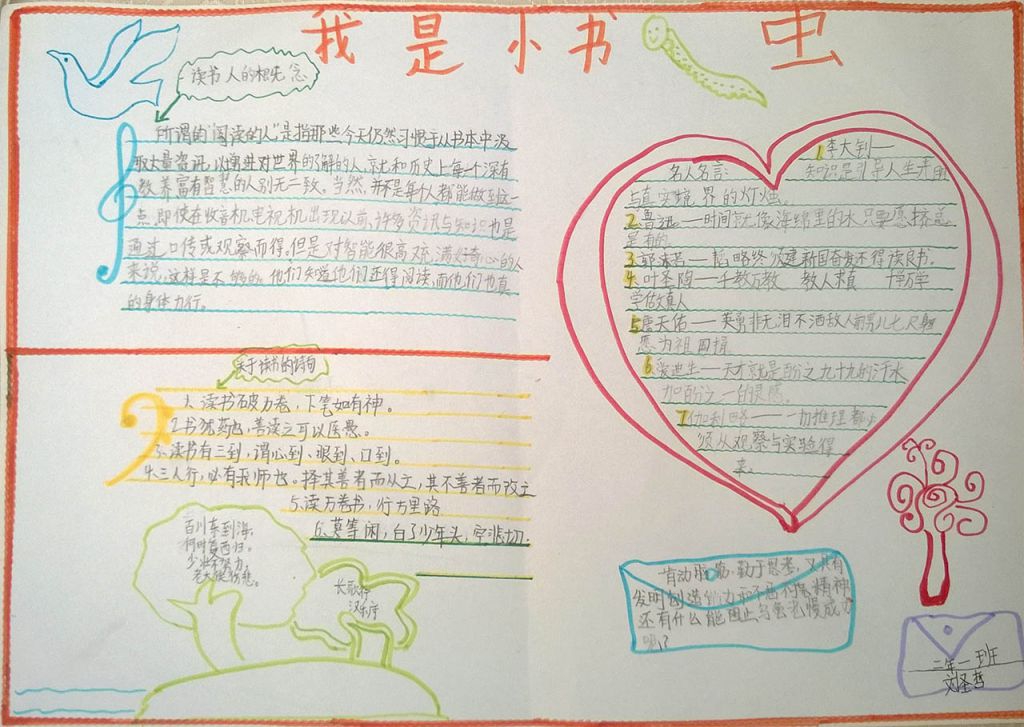 我是小书虫
读书人的相关概念
所谓的"阅读的人"是指那些今天仍然习惯于从书本中汲
取大量资讯,以增进对世界的了解的人,就和历史上每一个深有
教养富有智慧的人别无二致。当然,并不是每个人都能做到这一
点,即使在收音机、电视机出现以前,许多资讯与知识也是
通过口传或观察而得。但是对智能很高、充满好奇心的人
来说,这样是不够的。他们知道他们还得阅读,而他们也真
的身体力行。
名人名言:
1.李大钊——
知识是引导人生
与真实境界的灯烛。
2.鲁迅——时间就像海绵里的水只要愿挤总
是有的
3.郭沫若——韬略终须建新国奋发不得读良书.
4.叶圣陶——千教万教 教人求真
学做真人
5.唐天佑——英勇非无泪不洒敌人前男儿七尺躯
愿为祖国捐.
6.爱迪生——天才就是百分之九十九的汗水
加百分之一的灵感。
7.伽利略——一切推理都必
须从观察与实验得
来。
关于读书的诗句
1.读书破万卷,下笔如有神。
2.书犹药也,善读之可以医愚。
3.读书有三到,谓心到、眼到、口到。
4.三人行,必有我师也。择其善者而从之,其不善者而改之
5.读万卷书,行万里路
6.莫等闲,白了少年头,空悲切
百川东到海,
何时复西归。
少壮不努力,
老大徒伤悲。
长歌行
汉乐府
肯动脑筋,勤于思考,又具有
发明创造能力和不屈不挠精神
还有什么能阻止乌云
呢?
二年一班